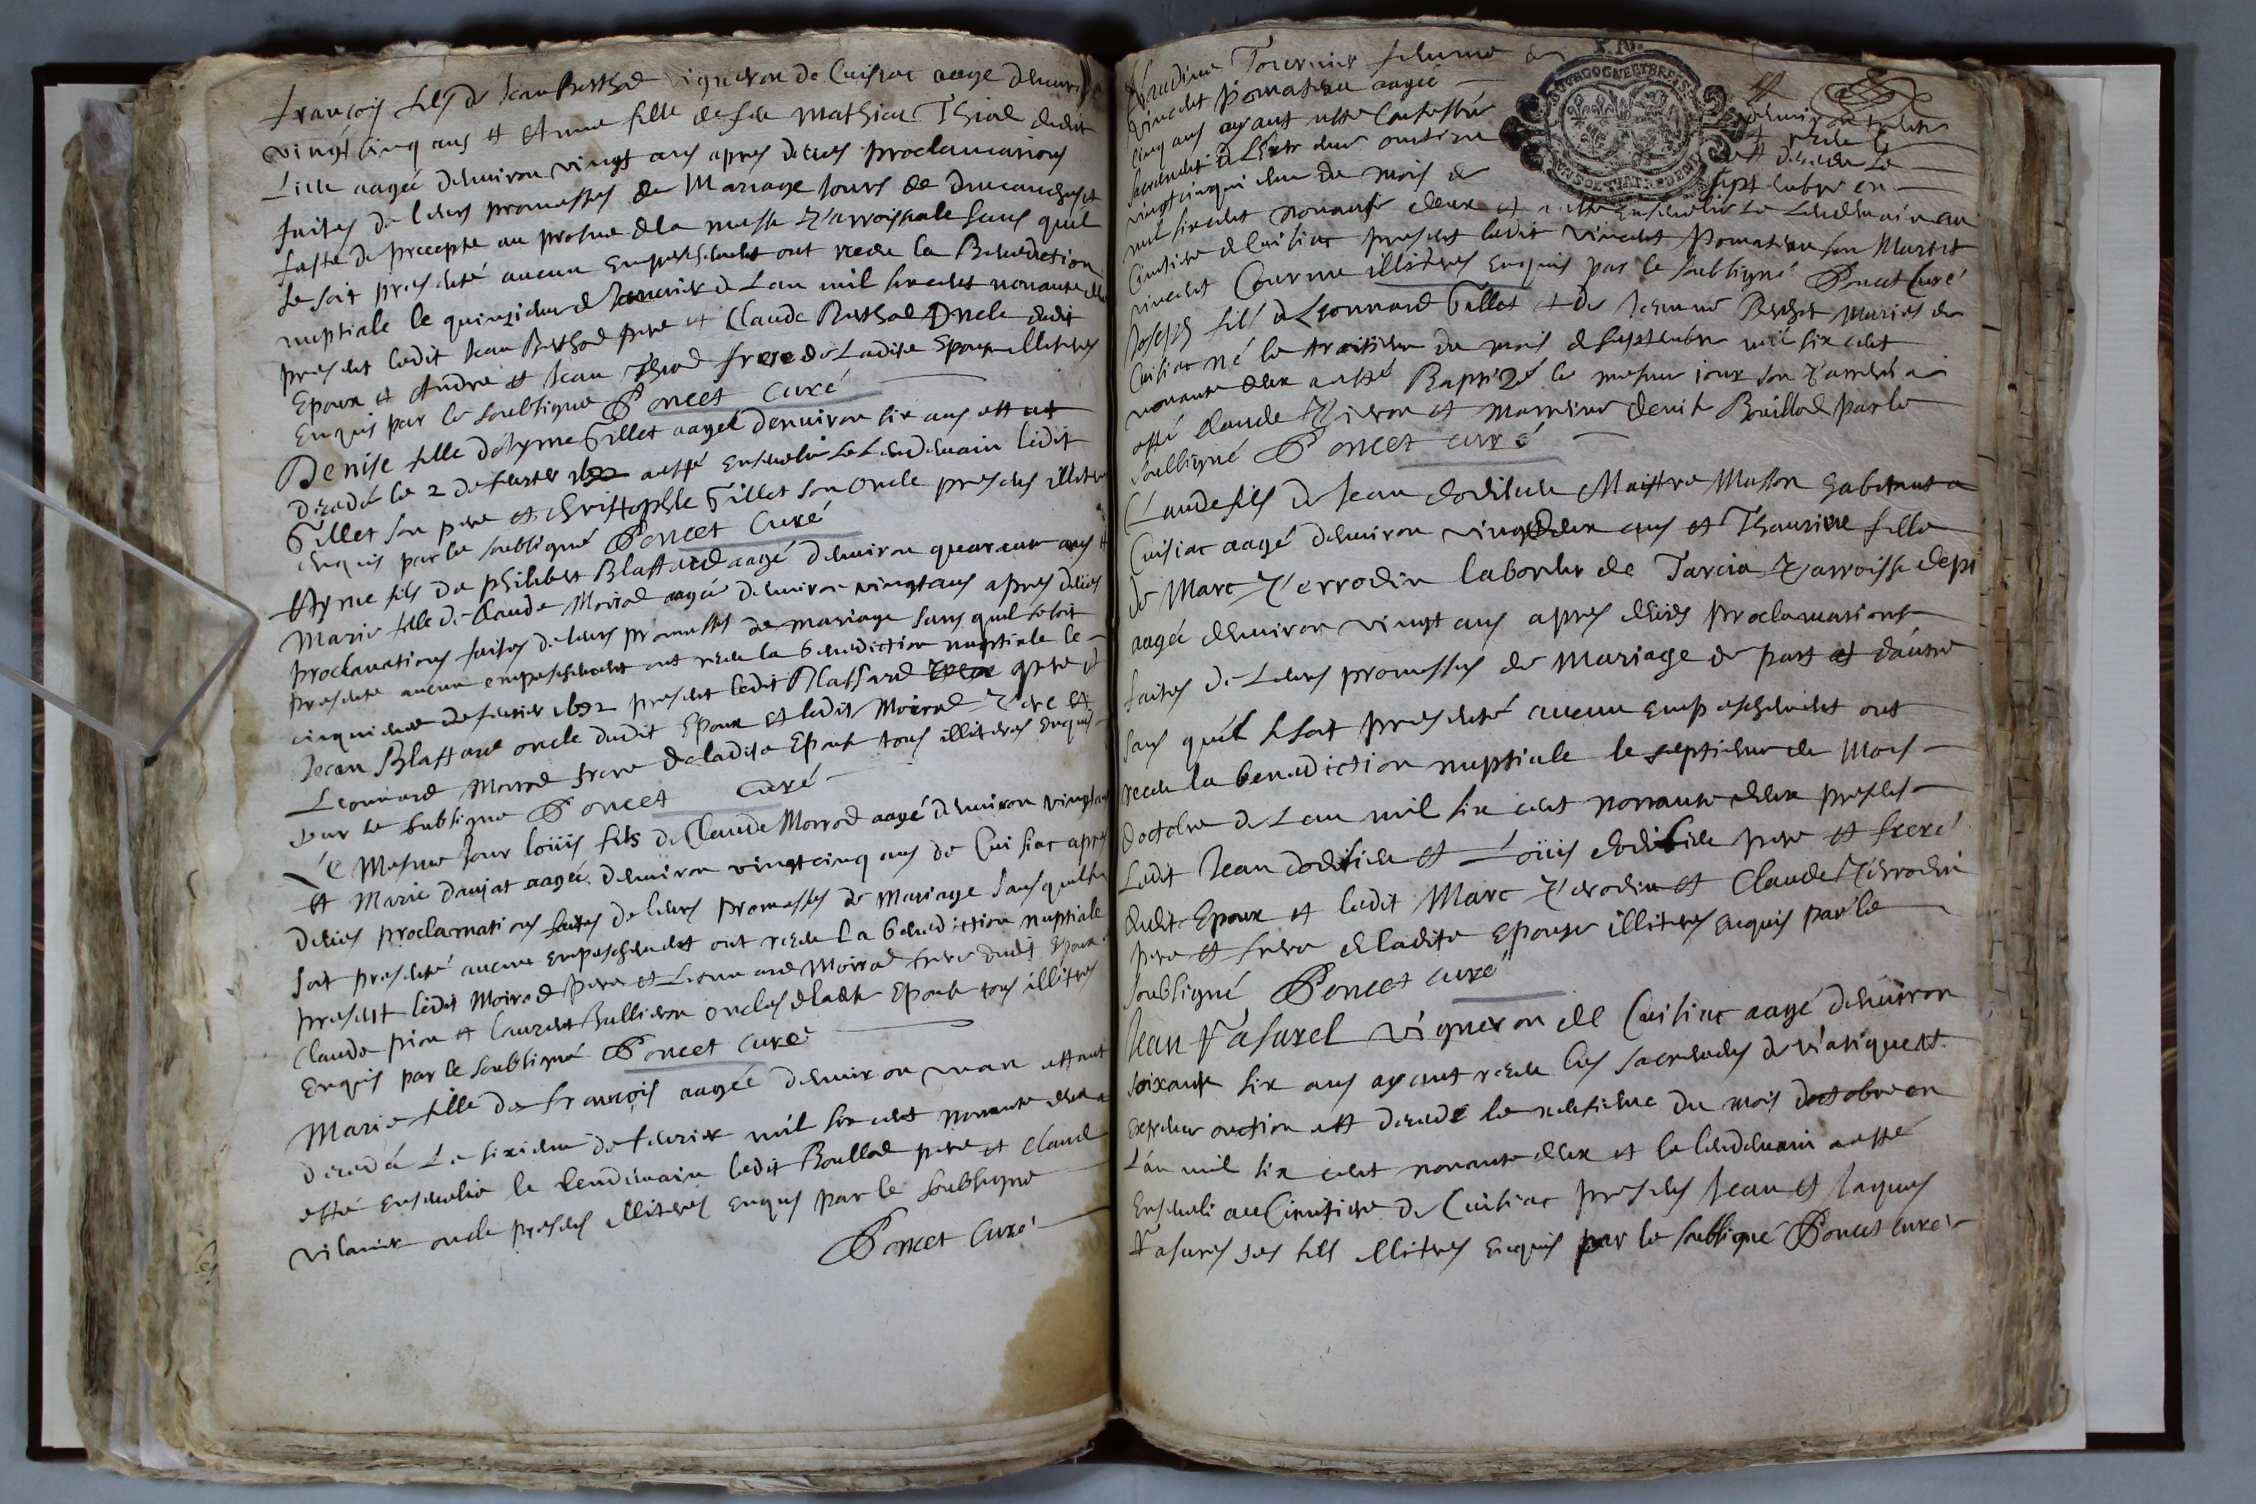 francois fils de Jean Berthod vigneron de Cuisiac aage denviron
vingt cinq ans et Anne fille de feu Mathieu Thiod dudit
Lieu aagée denviron vingt ans apres deues proclamations
faites de leurs promesses de Mariage Jours de dimanches et
feste de precepte au prosne de la messe Parroissiale sans quil
se soit presenté aucun Empeschement ont receu la Benediction
nuptiale le quinzieme de Janvier de Lan mil six cent nonante deux
present ledit Jean Berthod pere et Claude Berthod Oncle dudit
Epoux et André et Jean Thiod freres de Ladite Epouse illiteres
Enquis par le soubsigné Poncet Curé
Denise fille d'Ayme Gillet aageé denviron six ans est
decedée le 2 de fevrier 1692 a esté Ensevelie Le Lendemain ledit
Gillet son pere et christophle Gillet son oncle presens illiteres
enquis par le soubsigné Poncet Curé
Ayme fils de philibert Blaffard aagé denviron quarante ans et
Marie fille de Claude Moirod aagée denviron vingt ans apres deues
proclamations faites de leurs promesses de mariage sans quil se soit
presenté aucun empeschement ont receu la benediction nuptiale le
cinquieme de fevrier 1692 present ledit Blaffard pere et
Jean Blaffard oncle dudit Epoux et ledit Moirod Pere et
Leonnard Moirod frere de ladite Epouse tous illiteres Enquis
par le soubsigné Poncet Curé
Le Mesme Jour loüis fils de Claude Moirod aagé denviron vingt ans
et Marie daujat aagée denviron vingt cinq ans de Cuisiac apres
deües proclamations faites de leurs promesses de Mariage sans quil se
soit presenté aucun empeschement ont receu la benediction nuptiale
present ledit Moirod pere et Leonnard Moirod frere dudit Epoux
Claude prion et laurent Bullieron oncles de ladite Epouse tous illiteres
Enquis par le soubsigné Poncet Curé
Marie fille de françois aagée denviron un an estant
decedée Le sixieme de fevrier mil six cent nonante deux a
esté Ensevelie le lendemain ledit Boullod pere et claude
vilanier oncle presens illiteres enquis par le soubsigne
Poncet Curé
Claudine Tournier femme de
vincent Pomatieu aageé denviron trente
cinq ans ayant esté Confessée et receu le
sacrement de Lextreme onction est decedée Le
vingt cinquieme du mois de septembre en
mil six cent nonante deux et a esté Ensevelie Le Lendemain au
Cimetiere de Cuisiac present ledit vincent Pomatieu son Mari et
vincent Courme illiteres enquis par le soubsigné Poncet Curé
Joseph fils de Leonnard Gillet et de Jeanne Berthet Mariés de
Cuisiac né le troisieme du mois de septembre mil six cent
nonante deux a esté Baptizé le mesme jour son Parrain a
esté Claude Pieron et Marrine denise Bouillod par le
soubsigné Poncet curé
Claude fils de Jean dodieu Maistre Masson habitant a
Cuisiac aagé denviron vingt deux ans et Thaurine fille
de Marc Perrodin laboreur de Tarcia Parroisse de pi
aagée denviron vingt ans apres deües proclamations
faites de Leurs promesses de Mariage de part et dautre
sans quil se soit presenté aucun empeschement ont
receu la benediction nuptiale le septieme de Mois
doctobre de Lan mil six cent nonante deux present
Ledit Jean dodieu et Loüis dodieu pere et frere
dudit Epoux et ledit Marc Perrodin et Claude Perrodin
pere et frere de ladite Epouse illiteres enquis par le
soubsigné Poncet Curé
Jean Vasarel vigneron de Cuisiac aagé denviron
soixante six ans ayant receu les sacremens de viatique et
extreme onction est decedé le neufieme du mois doctobre en
L'an mil six cent nonante deux et le lendemain a esté
Enseveli au Cimetiere de Cuisiac presens Jean et Jaques
Vasarel ses fils illiteres enquis par le soubsigné Poncet curé